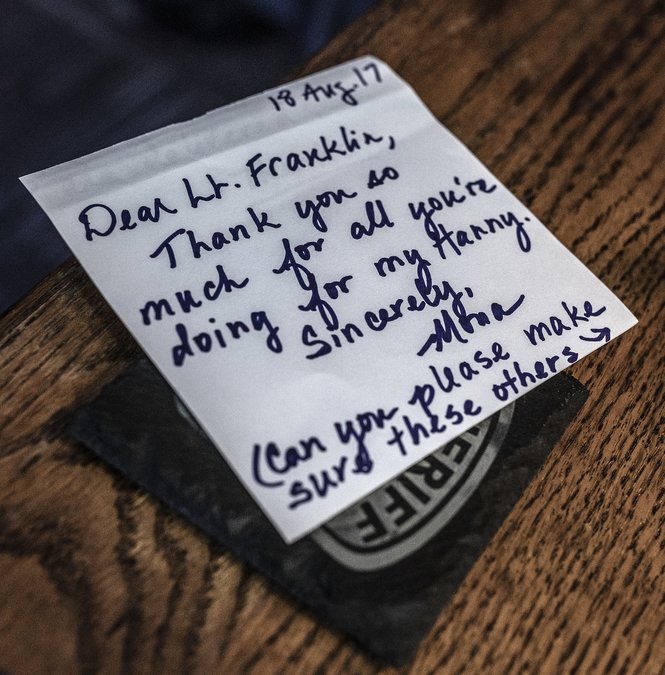 18 Aug. 17
Dear Lt. Franklin,
Thank you so
much for all you're
doing for my Hanny.
Sincerely,
Mona
(Can you please make
sure these others →
SHERIFF